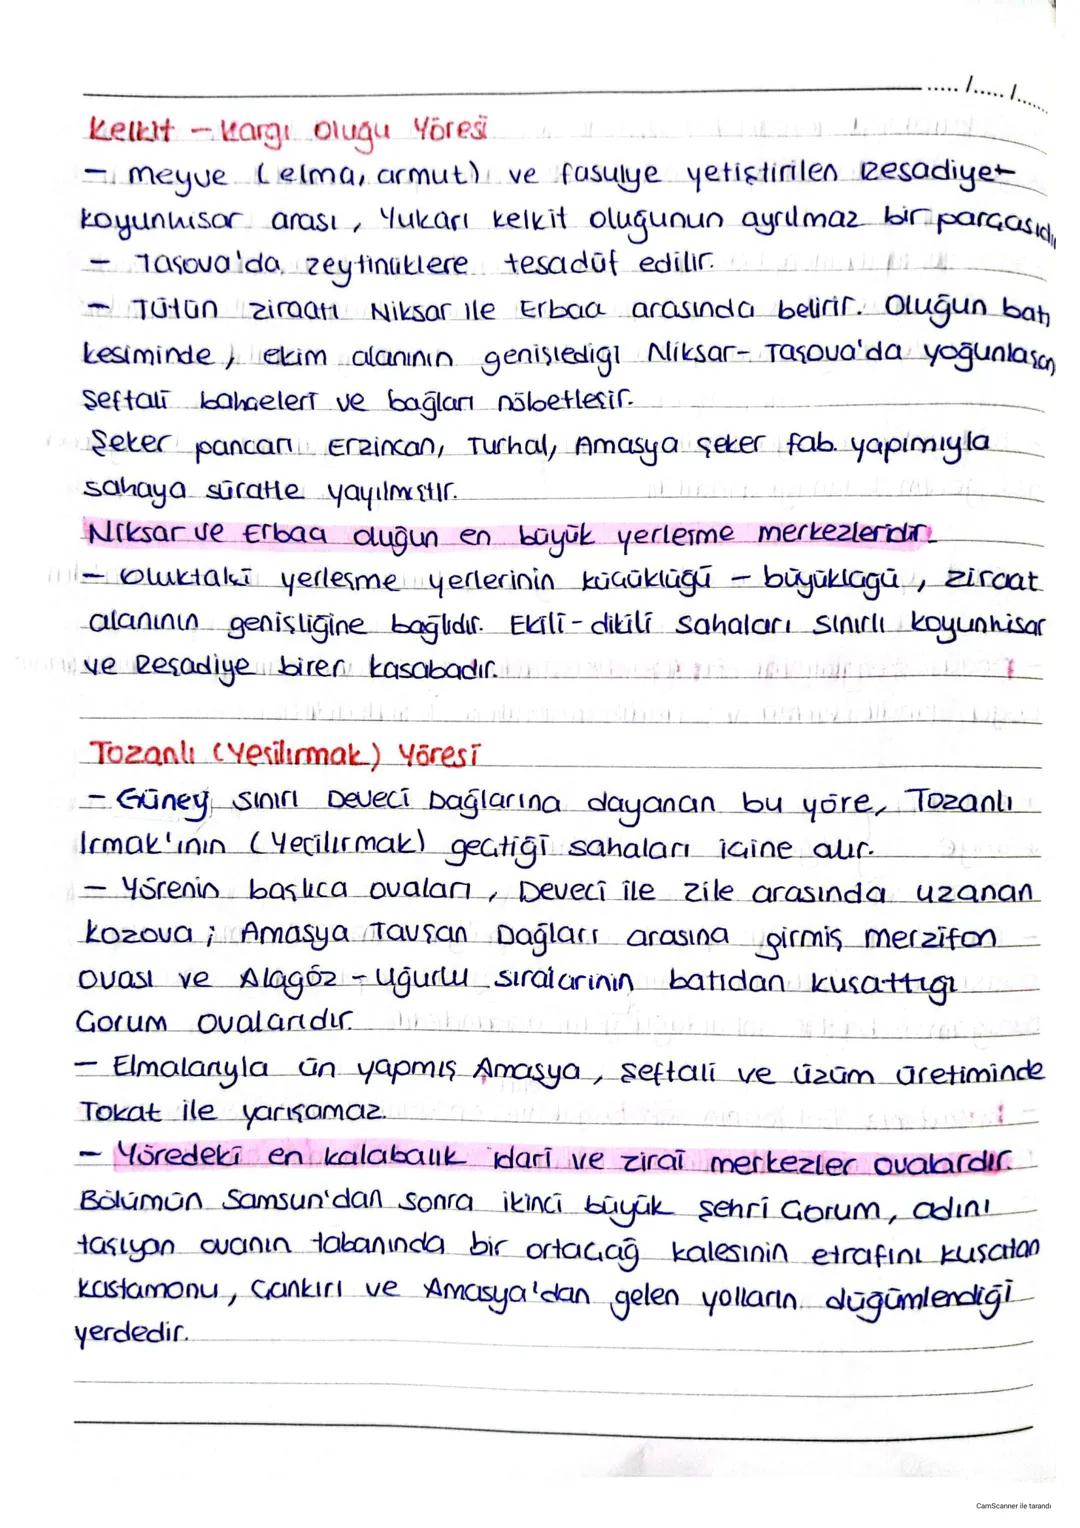 ..... /..... /......
Kelkit - Kargı Oluğu Yöresi
- meyve (elma, armut) ve fasulye yetiştirilen Reşadiye-
Koyunhisar arası, Yukarı Kelkit oluğunun ayrılmaz bir parçasıdır
- Taşova'da zeytinliklere tesadüf edilir.
- Tütün ziraatı Niksar ile Erbaa arasında belirir. Oluğun batı
kesiminde, ekim alanının genişlediği Niksar- Taşova'da yoğunlaşan
Şeftali bahçeleri ve bağları nöbetleşir.
Şeker pancarı Erzincan, Turhal, Amasya şeker fab. yapımıyla
sahaya süratle yayılmıştır.
Niksar ve Erbaa oluğun en büyük yerleşme merkezleridir.
- Oluktaki yerleşme yerlerinin küçüklüğü - büyüklüğü, ziraat
alanının genişliğine bağlıdır. Ekili - dikili sahaları sınırlı Koyunhisar
ve Reşadiye birer kasabadır.
Tozanlı (Yeşilırmak) Yöresi
- Güney sınırı Deveci Dağlarına dayanan bu yöre, Tozanlı
Irmak'ının (Yeşilırmak) geçtiği sahaları içine alır.
- Yörenin başlıca ovaları, Deveci ile Zile arasında uzanan
Kazova; Amasya Tavşan Dağları arasına girmiş Merzifon
ovası ve Alagöz - Uğurlu sıralarının batıdan kuşattığı
Çorum ovalarıdır.
- Elmalarıyla ün yapmış Amasya, şeftali ve üzüm üretiminde
Tokat ile yarışamaz.
- Yöredeki en kalabalık idari ve zirai merkezler ovalardır.
Bölümün Samsun'dan sonra ikinci büyük şehri Çorum, adını
taşıyan ovanın tabanında bir ortaçağ kalesinin etrafını kuşatan
Kastamonu, Çankırı ve Amasya'dan gelen yolların düğümlendiği
yerdedir.
CamScanner ile tarandı